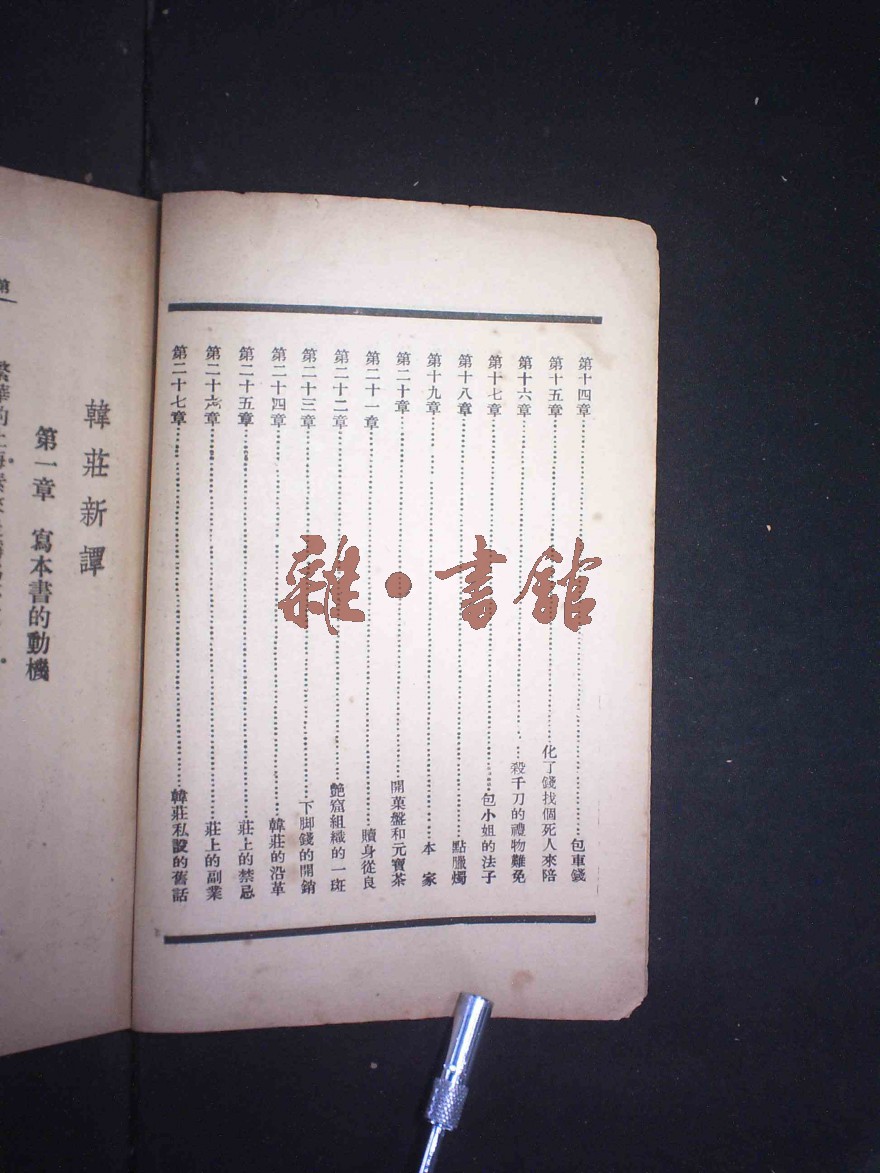 第十四章……包車錢
第十五章……化了錢找個死人來陪
第十六章……殺千刀的禮物難免
第十七章……包小姐的法子
第十八章……點臘燭
第十九章……本 家
第二十章……開菓盤和元寶茶
第二十一章……贖身從良
第二十二章……艷窟組織的一斑
第二十三章……下脚錢的開銷
第二十四章……韓莊的沿革
第二十五章……莊上的禁忌
第二十六章……莊上的副業
第二十七章……韓莊私設的舊話
韓莊新譚
第一章 寫本書的動機
第一
雜•書館